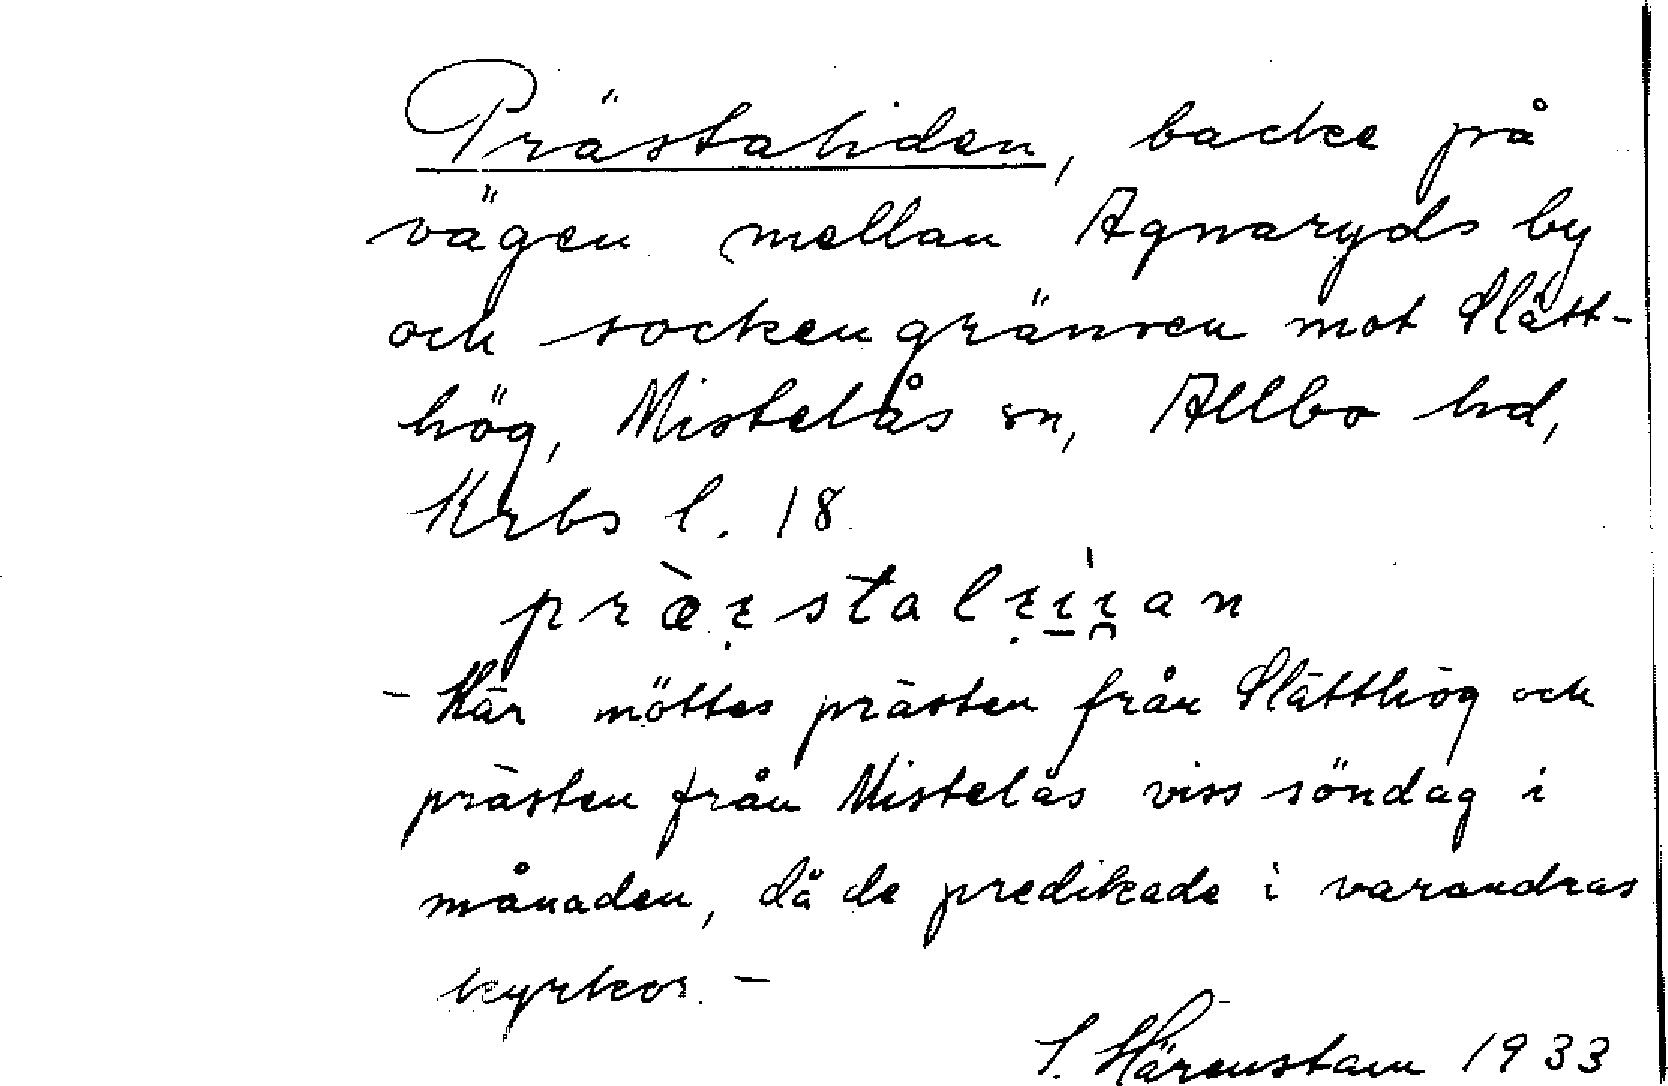 Prästaliden, backe på
vägen mellan Agnaryds by
och sockengränsen mot Slätt-
hög, Mistelås sn, Allbo hd,
Krbs l. 18
- Här möttes prästen från Slätthög och
prästen från Mistelås viss söndag i
månaden, då de predikade i varandras
kyrkor. -
S. Härenstam 1933